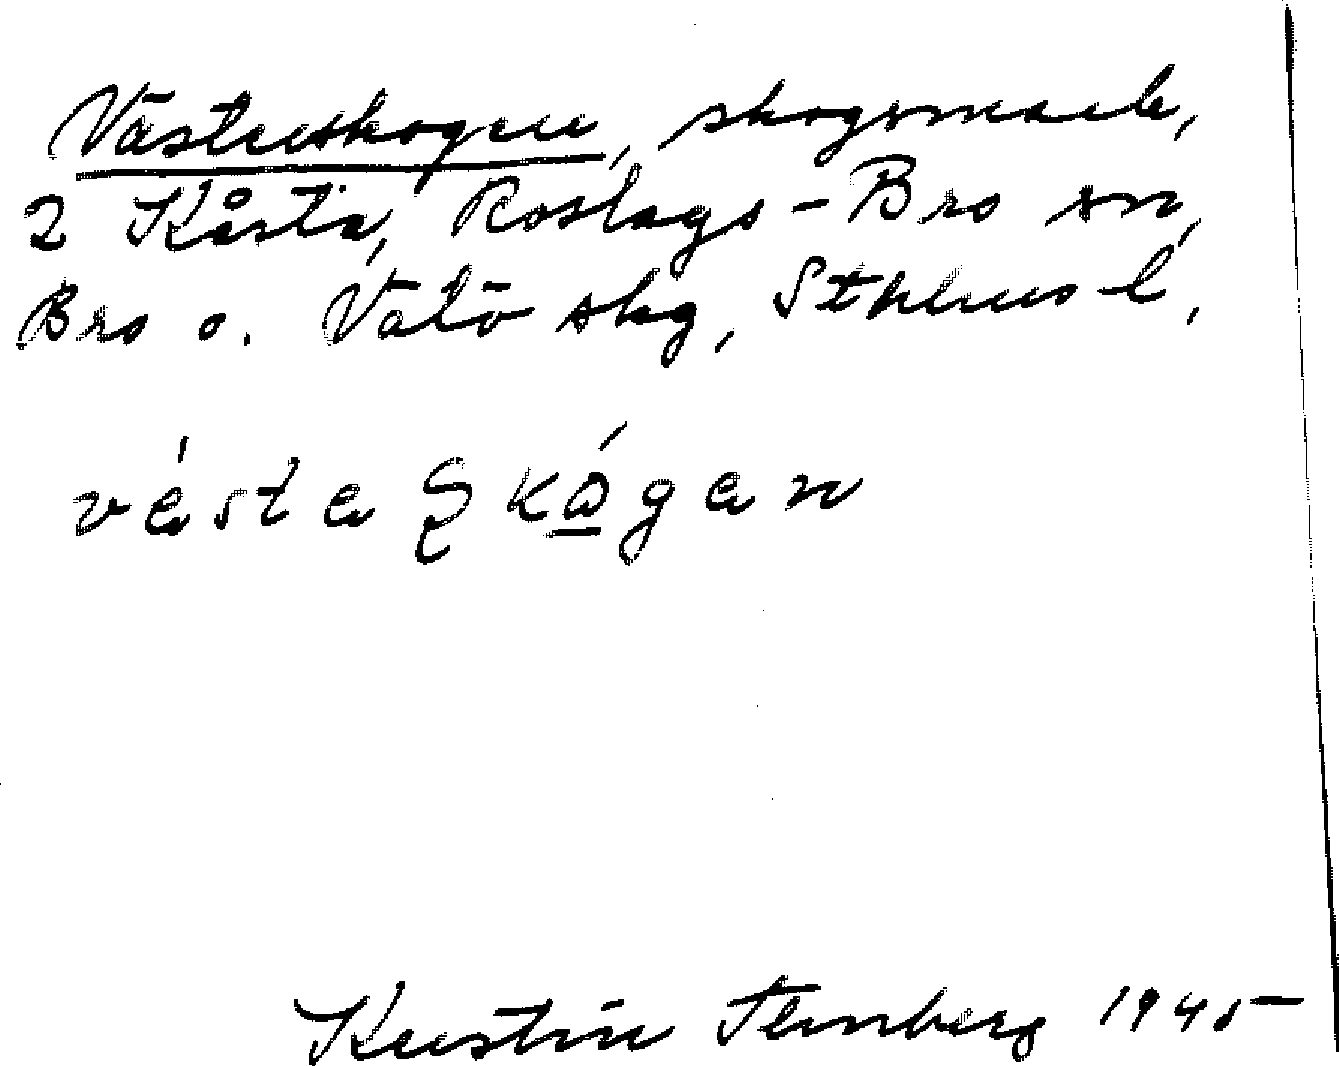 Västerskogen, skogsmark,
2 Kårsta, Roslags-Bro sn,
Bro o. Vätö skg, Sthlms l,
Kerstin Stenberg 1945